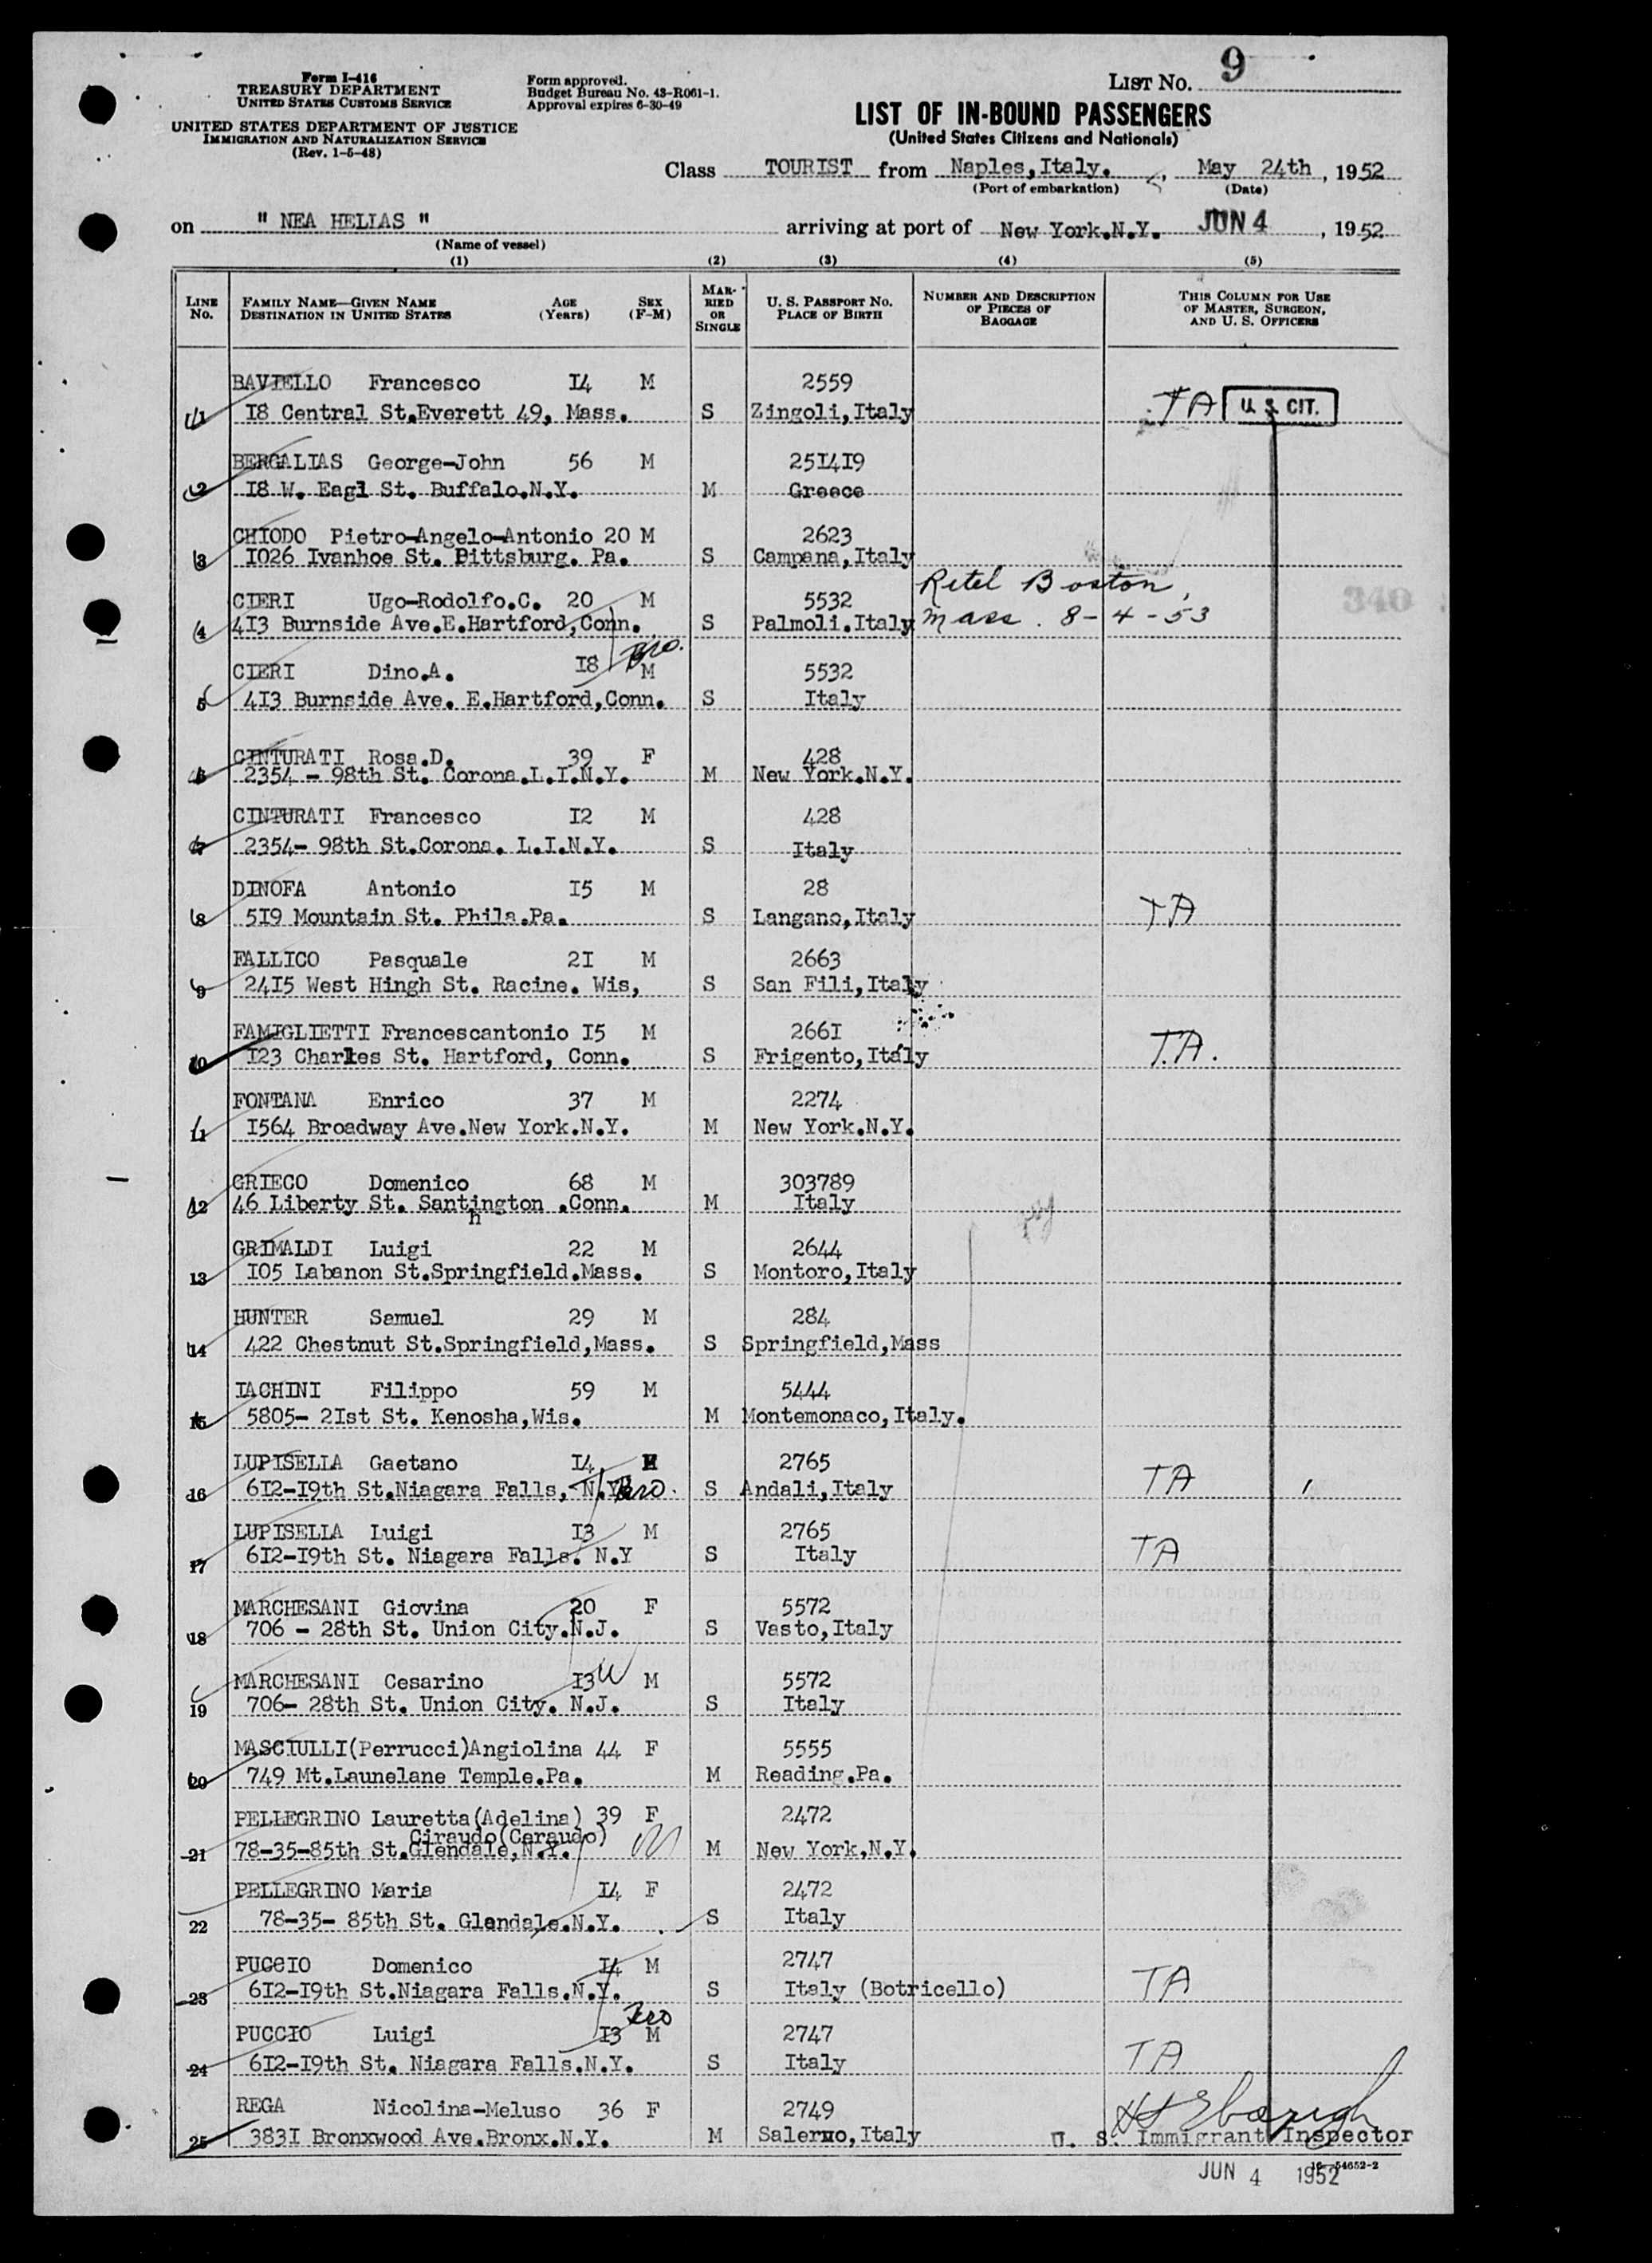 LIST No. 9
Form I-416
TREASURY DEPARTMENT
UNITED STATES CUSTOMS SERVICE
UNITED STATES DEPARTMENT OF JUSTICE
IMMIGRATION AND NATURALIZATION SERVICE
(Rev. 1-5-48)
Form approved.
Budget Bureau No. 43-R061-1.
Approval expires 6-30-49
LIST OF IN-BOUND PASSENGERS
(United States Citizens and Nationals)
Class TOURIST from Naples,Italy. , May 24th , 1952
(Port of embarkation) (Date)
on " NEA HELIAS " arriving at port of New York.N.Y. JUN 4 , 1952
(Name of vessel)
(1) (2) (3) (4) (5)
LINE No. FAMILY NAME—GIVEN NAME DESTINATION IN UNITED STATES AGE (Years) SEX (F-M) MARRIED OR SINGLE U. S. PASSPORT No. PLACE OF BIRTH NUMBER AND DESCRIPTION OF PIECES OF BAGGAGE THIS COLUMN FOR USE OF MASTER, SURGEON, AND U. S. OFFICERS
BAVIELLO Francesco I4 M 2559
1 I8 Central St.Everett 49, Mass. S Zingoli,Italy TA U. S. CIT.
BERGALIAS George-John 56 M 25I4I9
2 I8 W. Eagl St. Buffalo.N.Y. M Greece
CHIODO Pietro-Angelo-Antonio 20 M 2623
3 I026 Ivanhoe St. Pittsburg. Pa. S Campana,Italy
CIERI Ugo-Rodolfo.C. 20 M 5532 Retel Boston,
4 4I3 Burnside Ave.E.Hartford,Conn. S Palmoli.Italy Mass. 8-4-53
340
CIERI Dino.A. I8 Bro. M 5532
5 4I3 Burnside Ave. E.Hartford,Conn. S Italy
CINTURATI Rosa.D. 39 F 428
6 2354 - 98th St. Corona.L.I.N.Y. M New York.N.Y.
CINTURATI Francesco I2 M 428
7 2354- 98th St.Corona. L.I.N.Y. S Italy
DINOFA Antonio I5 M 28
8 5I9 Mountain St. Phila.Pa. S Langano,Italy TA
FALLICO Pasquale 2I M 2663
9 24I5 West Hingh St. Racine. Wis, S San Fili,Italy
FAMIGLIETTI Francescantonio I5 M 266I
10 I23 Charles St. Hartford, Conn. S Frigento,Italy T.A.
FONTANA Enrico 37 M 2274
11 I564 Broadway Ave.New York.N.Y. M New York.N.Y.
GRIECO Domenico 68 M 303789
12 46 Liberty St. Santington .Conn. M Italy
h
GRIMALDI Luigi 22 M 2644
13 I05 Labanon St.Springfield.Mass. S Montoro,Italy
HUNTER Samuel 29 M 284
14 422 Chestnut St.Springfield,Mass. S Springfield,Mass
IACHINI Filippo 59 M 5444
15 5805- 2Ist St. Kenosha,Wis. M Montemonaco,Italy.
LUPISELLA Gaetano I4 M 2765
16 6I2-I9th St.Niagara Falls, N.Y. Bro. S Andali,Italy TA
LUPISELLA Luigi I3 M 2765
17 6I2-I9th St. Niagara Falls. N.Y S Italy TA
MARCHESANI Giovina 20 F 5572
18 706 - 28th St. Union City.N.J. S Vasto,Italy
MARCHESANI Cesarino I3 M 5572
19 706- 28th St. Union City. N.J. S Italy
MASCIULLI(Perrucci)Angiolina 44 F 5555
20 749 Mt.Launelane Temple.Pa. M Reading.Pa.
PELLEGRINO Lauretta(Adelina) 39 F 2472
Giraudo(Caraudo)
21 78-35-85th St.Glendale,N.Y. M New York,N.Y.
PELLEGRINO Maria I4 F 2472
22 78-35- 85th St. Glendale.N.Y. S Italy
PUCCIO Domenico I4 M 2747
23 6I2-I9th St.Niagara Falls.N.Y. S Italy (Botricello) TA
Bro
PUCCIO Luigi I3 M 2747
24 6I2-I9th St. Niagara Falls.N.Y. S Italy TA
REGA Nicolina-Meluso 36 F 2749
25 383I Bronxwood Ave.Bronx.N.Y. M Salerno,Italy U. S. Immigrant Inspector
JUN 4 1952 16-54652-2